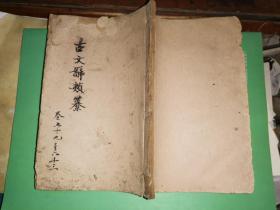 古文辭類纂
卷五十九至六十三